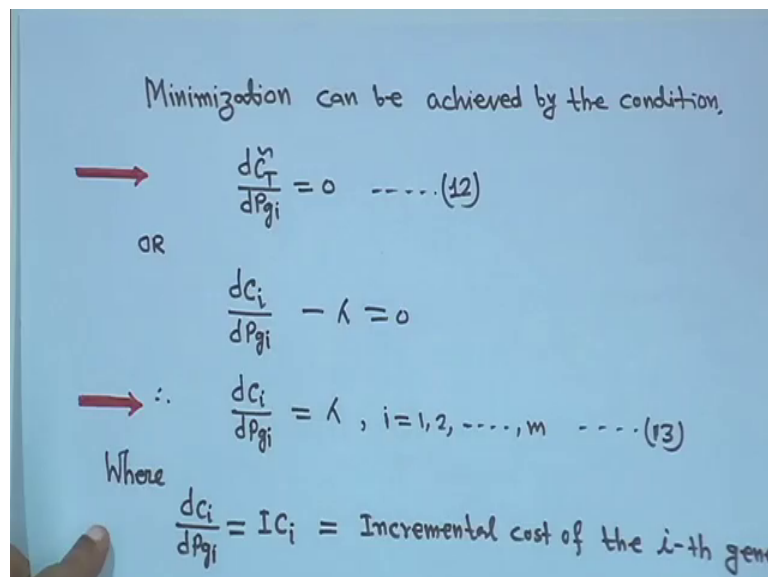 Minimization can be achieved by the condition.
dC̃T/dPgi = 0 -----(12)
OR
dCi/dPgi - λ = 0
∴ dCi/dPgi = λ, i = 1, 2, ----, m ----(13)
Where
dCi/dPgi = ICi = Incremental cost of the i-th gene